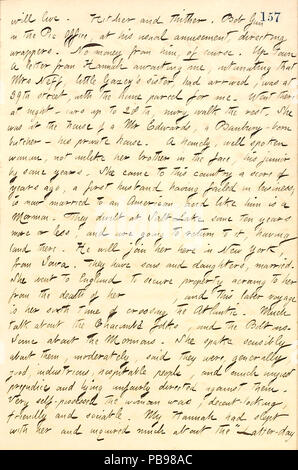 157
will live. Hither and thither. Bob Gun
in the Pic Office, at his usual amusement, directing
wrappers. No money from him, of course. Up town
a letter from Hannah awaiting me, intimating that
Mrs Neff, little Gazey's sister, had arrived, was at
39th street, with the home parcel for me. Went there
at night - cars up to 28th, navvy walk the rest. She
was at the house of a Mr Edwards, a Banbury-born
butcher - his private house. A homely, well spoken
woman, not unlike her brother in the face, his junior
by some years. She came to this country a score of
years ago, a first husband having failed in business,
is now married to an American, bred like him is a
Mormon. They dwelt at Salt Lake some ten years
more or less, and are going to return to it, having
land there. He will join her here in New York,
from Iowa. They have sons and daughters, married.
She went to England to secure property accruing to her
from the death of her , and this latter voyage
is her sixth time of crossing the Atlantic. Much
talk about the Chacombe folks, and the Boltons.
Some about the Mormons. She spoke sensibly
about them, moderately, said they were generally
good, industrious, hospitable people, and much unjust
prejudice and lying unfairly directed against them.
Very self-possessed the woman was, decent-looking,
friendly and sociable. My Hannah had slept
with her and inquired much about the "Latter-day
alamy
PB98AC